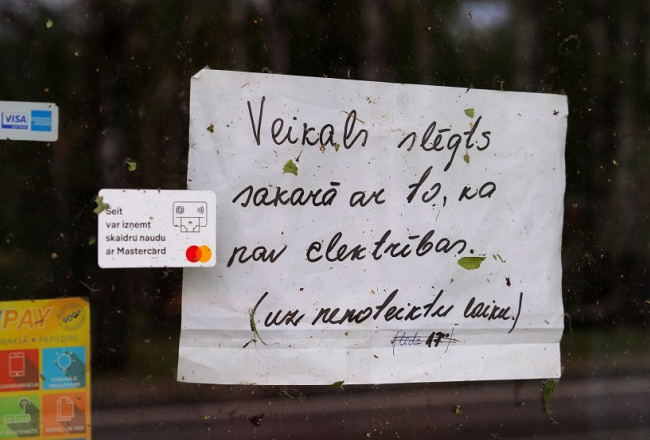 VISA
Šeit
var izņemt
skaidru naudu
ar Mastercard
PAY
MAKSĀ • PAPILDINI
Veikals slēgts
sakarā ar to, ka
nav elektrības.
(uz nenoteiktu laiku.)